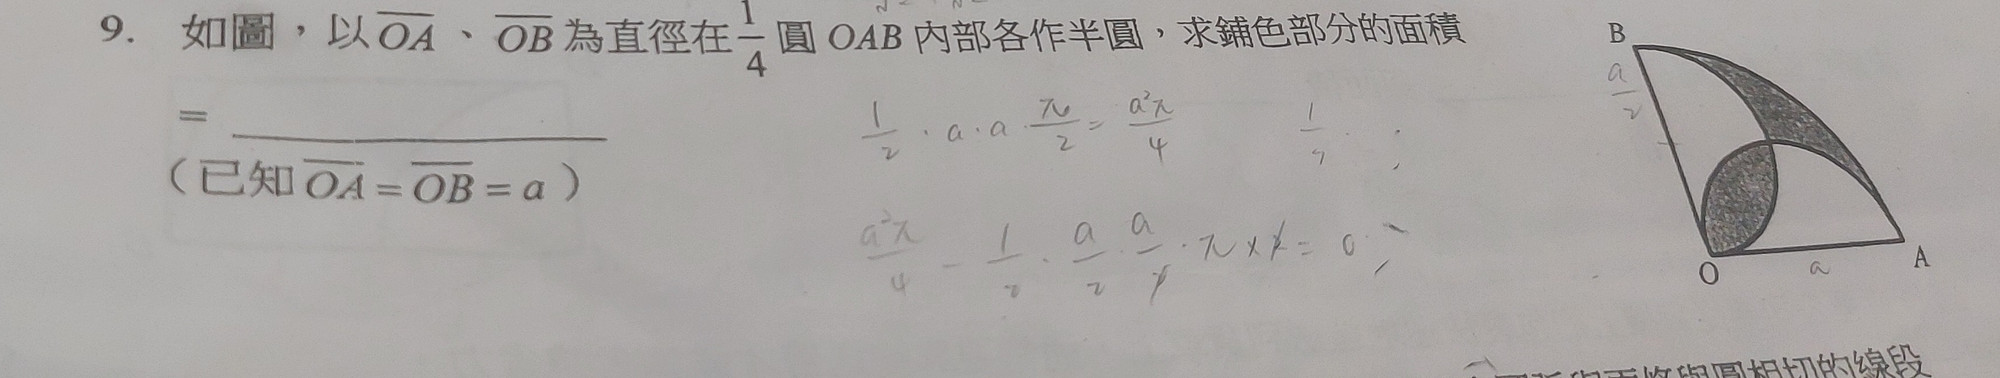 9. 如圖，以 OA、OB 為直徑在 1/4 圓 OAB 內部各作半圓，求鋪色部分的面積
= ________
（已知 OA = OB = a）
1/2 · a · a · π/2 = a²π/4
a²π/4 - 1/2 · a/2 · a/2 · π × 2 = 0
B
a/2
O
a
A